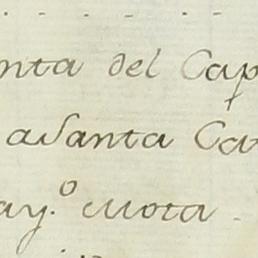 nta del Cap
a Santa Cat
ay.º cuota